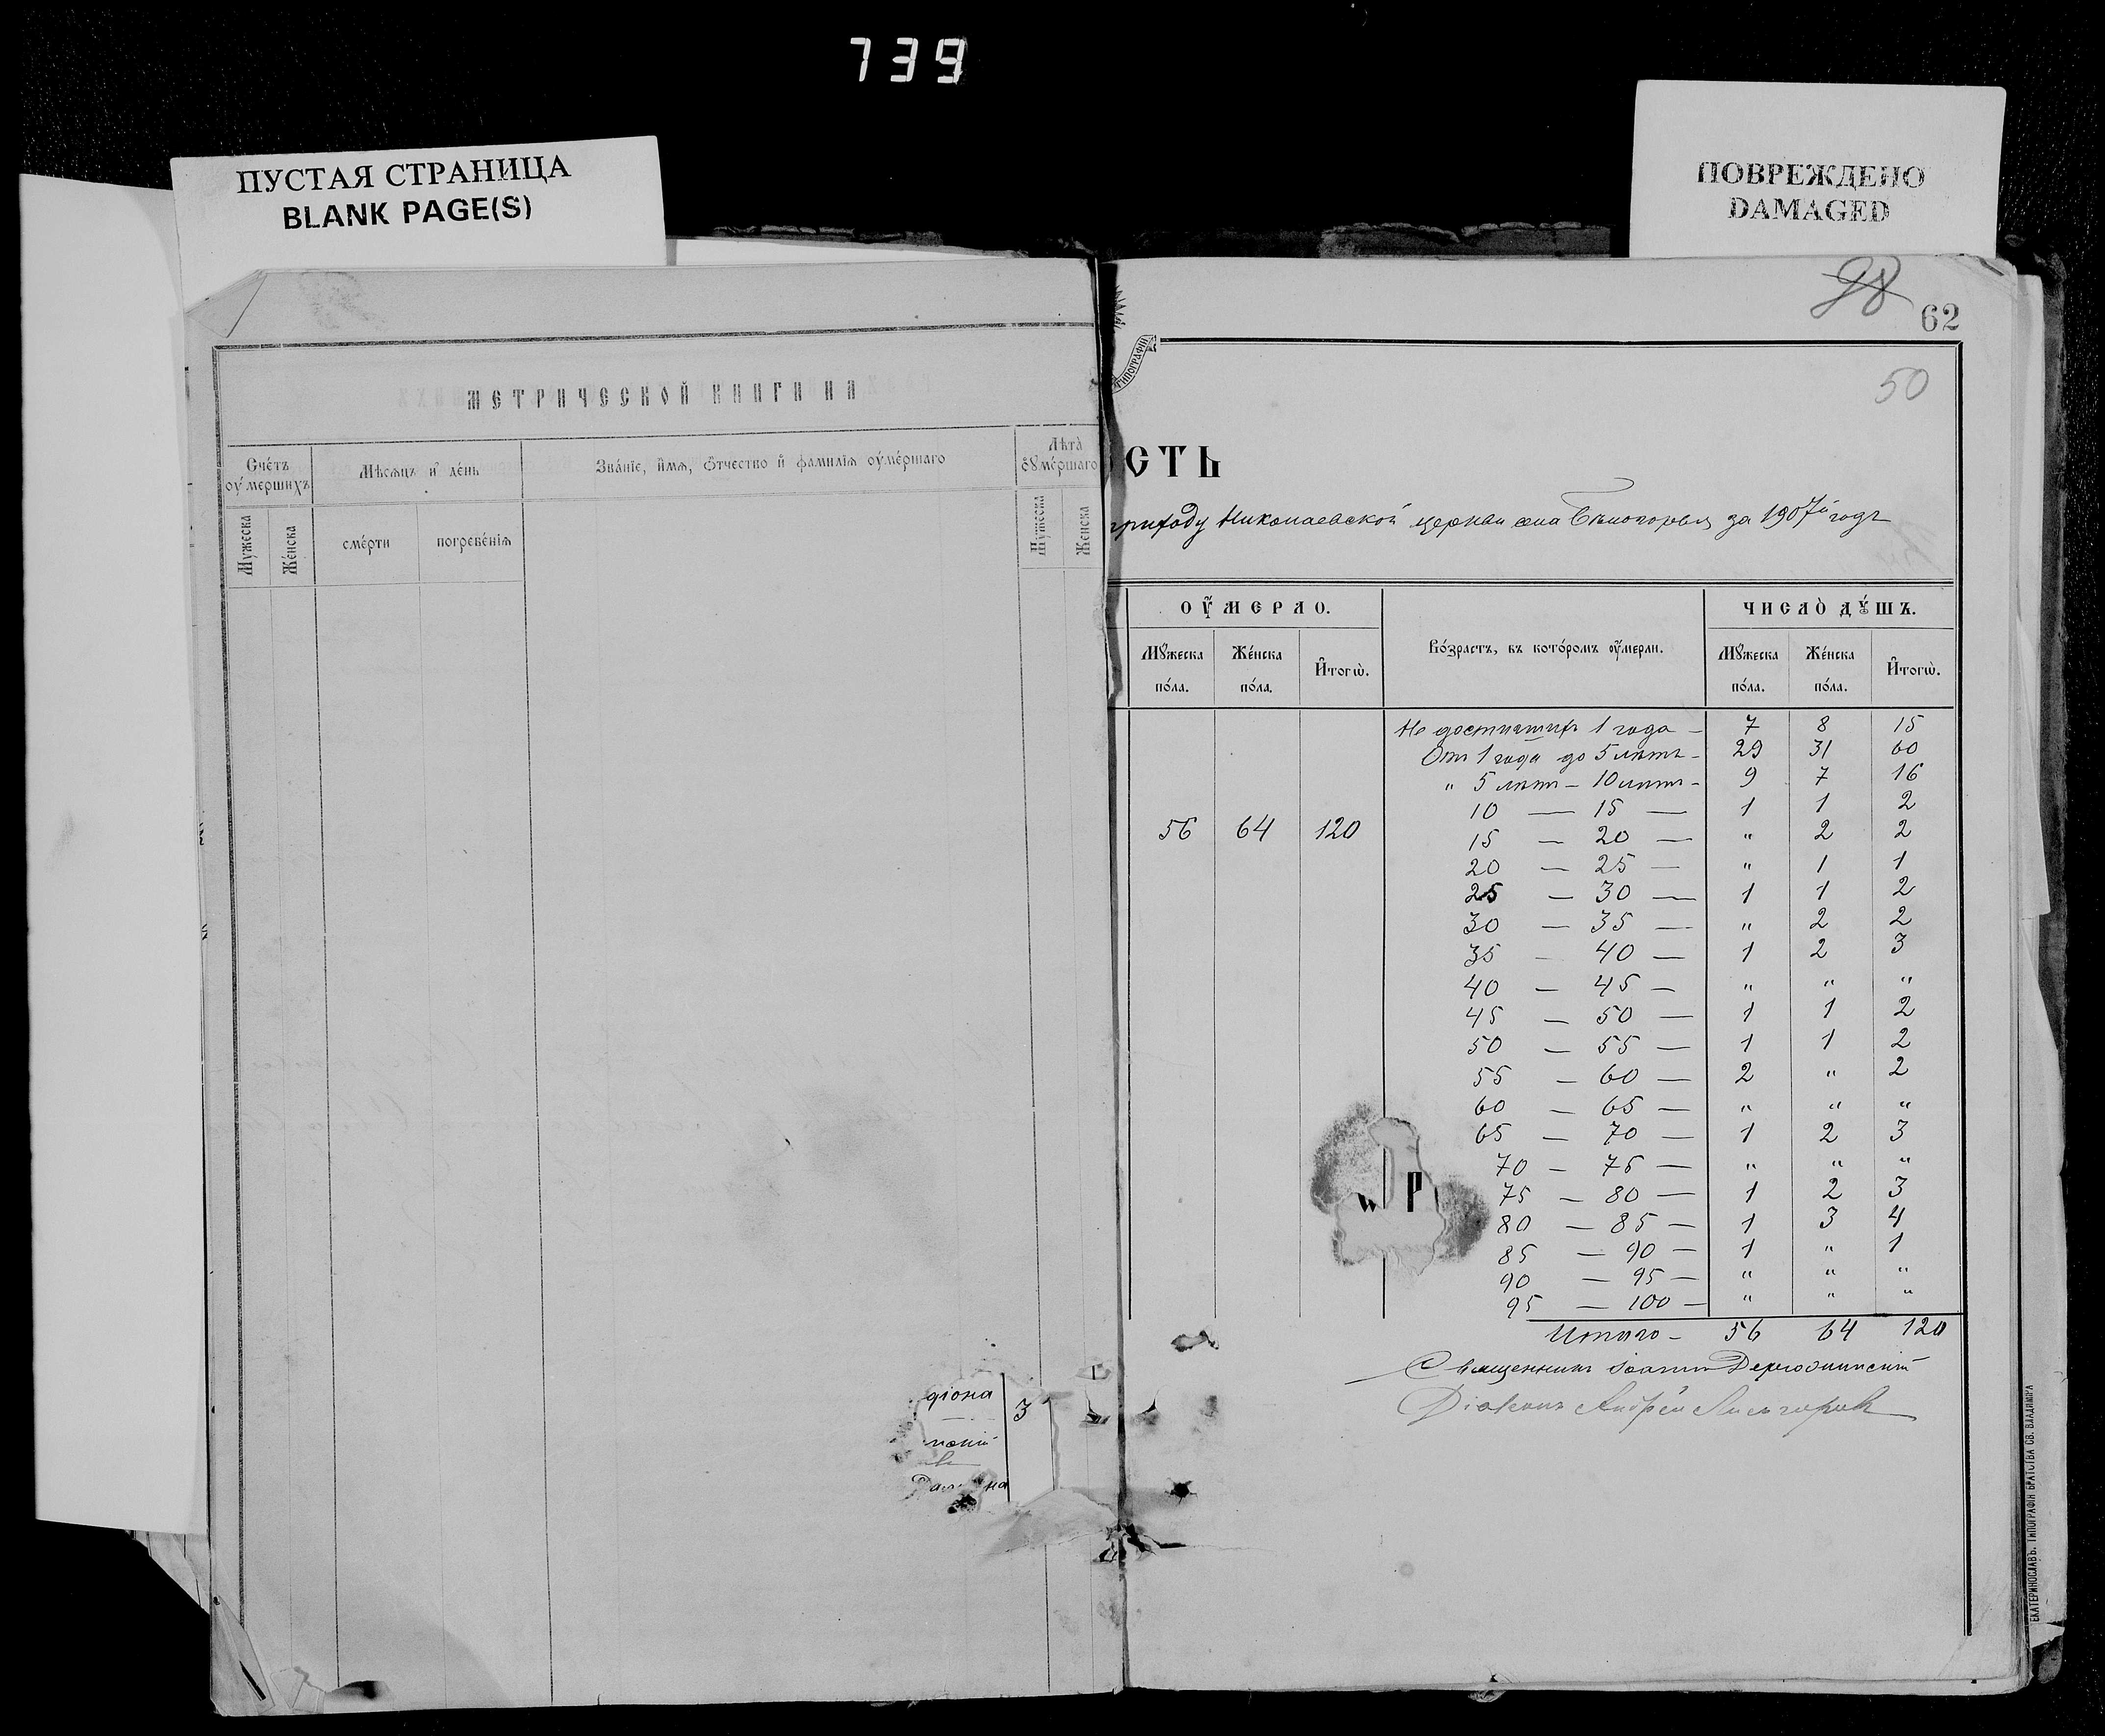 739
ПУСТАЯ СТРАНИЦА
BLANK PAGE(S)
ПОВРЕЖДЕНО
DAMAGED
98
62
50
МЕТРИЧЕСКОЙ КНИГИ НА
Счéтъ оу́мершихъ
Мѣсѧцъ и҆ дéнь
Звáнїе, и҆́мѧ, ѻ҆́тчество и҆ фамилїѧ оу҆мéршаго
Лѣта̀ ѹ҆мéршаго
Мужеска
Же́нска
смéрти
погребéнїѧ
Мужеска
Же́нска
дiона
3
ТИПОГРАФІИ
СТЬ
приходу Николаевской церкви села Бѣлогорья за 1907й годъ
ОУ҆МЕРЛО.
Возрастъ, въ котóромъ оу҆́мерли.
ЧИСЛО̀ ДꙊ́ШЪ.
Мꙋжеска пóла.
Же́нска пóла.
И҆тогѡ̀.
Мꙋжеска пóла.
Же́нска пóла.
И҆тогѡ̀.
Не достигшихъ 1 года – 7 8 15
Отъ 1 года до 5 лѣтъ – 29 31 60
" 5 лѣтъ – 10 лѣтъ – 9 7 16
10 — 15 — 1 1 2
56 64 120
15 — 20 — " 2 2
20 — 25 — " 1 1
25 — 30 — 1 1 2
30 — 35 — " 2 2
35 — 40 — 1 2 3
40 — 45 — " " "
45 — 50 — 1 1 2
50 — 55 — 1 1 2
55 — 60 — 2 " 2
60 — 65 — " " "
65 — 70 — 1 2 3
70 — 75 — " " "
75 — 80 — 1 2 3
80 — 85 — 1 3 4
85 — 90 — 1 " 1
90 — 95 — " " "
95 — 100 — " " "
Итого – 56 64 120
Священникъ Іоаннъ
Діаконъ Андрей
ЕКАТЕРИНОСЛАВЪ. ТИПОГРАФІЯ БРАТСТВА СВ. ВЛАДИМІРА